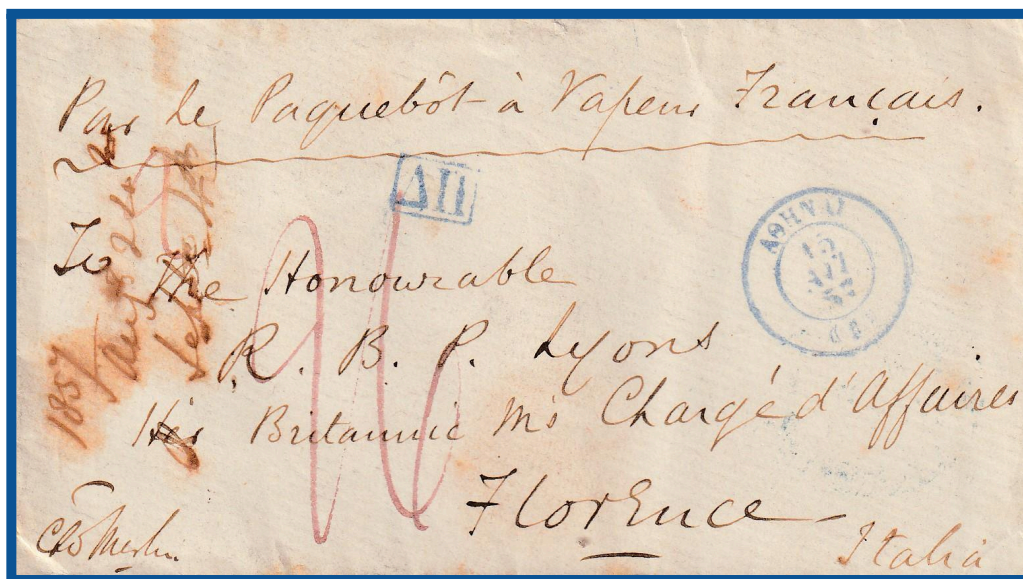 Par le Paquebôt à Vapeur Français.
ΔΠ
ΑΘΗΝΑΙ
To
The Honourable
R. B. P. Lyons
His Britannic M's Chargé d'Affaires
Florence
Italia
1857